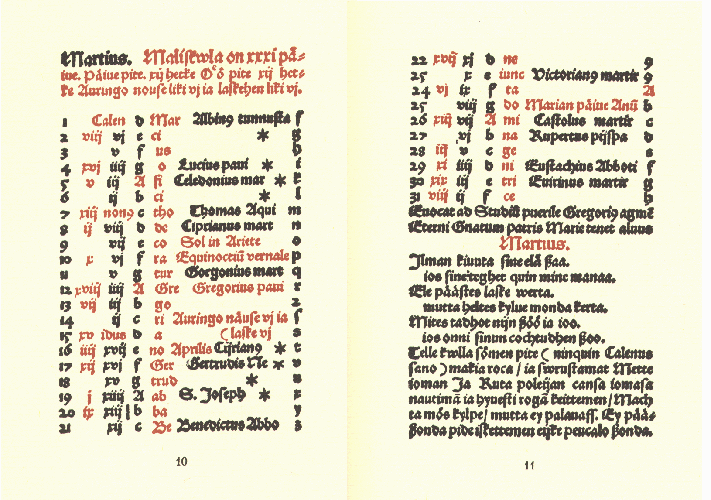 Martius. Maliskwla on xxxi på-
iue. Påiue pite. xij hetke Oeö pite xij het-
ke Auringo nouse liki vj ia laskehen liki vj.
1 Calen d Mar Albin9 tunnusta f
2 viij vj e ci * g
3 v f us h
4 xvj iiij g o Lucius paui * i
5 v iij A fi Celedonius mar * k
6 ij b ci * l
7 xiij non9 c tho Thomas Aqui m
8 ij viij d de Ciprianus mart n
9 vij e co Sol in Ariete o
10 x vj f ra Equinoctiũ vernale p
11 v g tur Gorgonius mart q
12 xviij iiij A Gre Gregorius paui r
13 vij iij b go z
14 ij c ri Auringo nåuse vj ia s
15 xv idus d a ( laske vj s
16 iiij xvij e no Aprilis Cirian9 * t
17 xij xvj f Ger Gertrudis Ne * v
18 xv g trud *
19 j xiiij A ab S. Joseph * x
20 ix xiij b ba y
21 xij c Be Benedictus Abbo z
10
22 xvij xj d ne 9
23 x e iunc Victorian9 martir 9
24 vj ix f ta A
25 viij g do Marian påiue Anũ b
26 xiiij vij A mi Castolus martir c
27 vj b na Rupertus pijspa d
28 iij v c ge e
29 xi iiij d ni Eustachius Abboti f
30 xix iij e tri Quirinus martir g
31 viij ij f ce h
Euocat ad Studiũ puerile Gregori9 agmẽ
Eterni Gnatum patris Marie tenet aluus
Martius.
Ilman kiuuta sine elä ßaa.
ios sine teghet quin minc manaa.
Ele pååstes laske werta.
mutta heltes kylue monda kerta.
Mites tadhot nijn ßöö ia ioo.
ios onni sinun cochtudhen ßoo.
Telle kwlla sömen pite ( ninquin Calenus
sano ) makia roca / ia swrustamat Mette
ioman Ja Ruta poleijan cansa iomasa
nautimã ia hyuesti rogã keittemen / Mach
ta mös kylpe / mutta ey palauass. Ey påå-
ßonda pide iskettemen eijke peucalo ßonda.
11